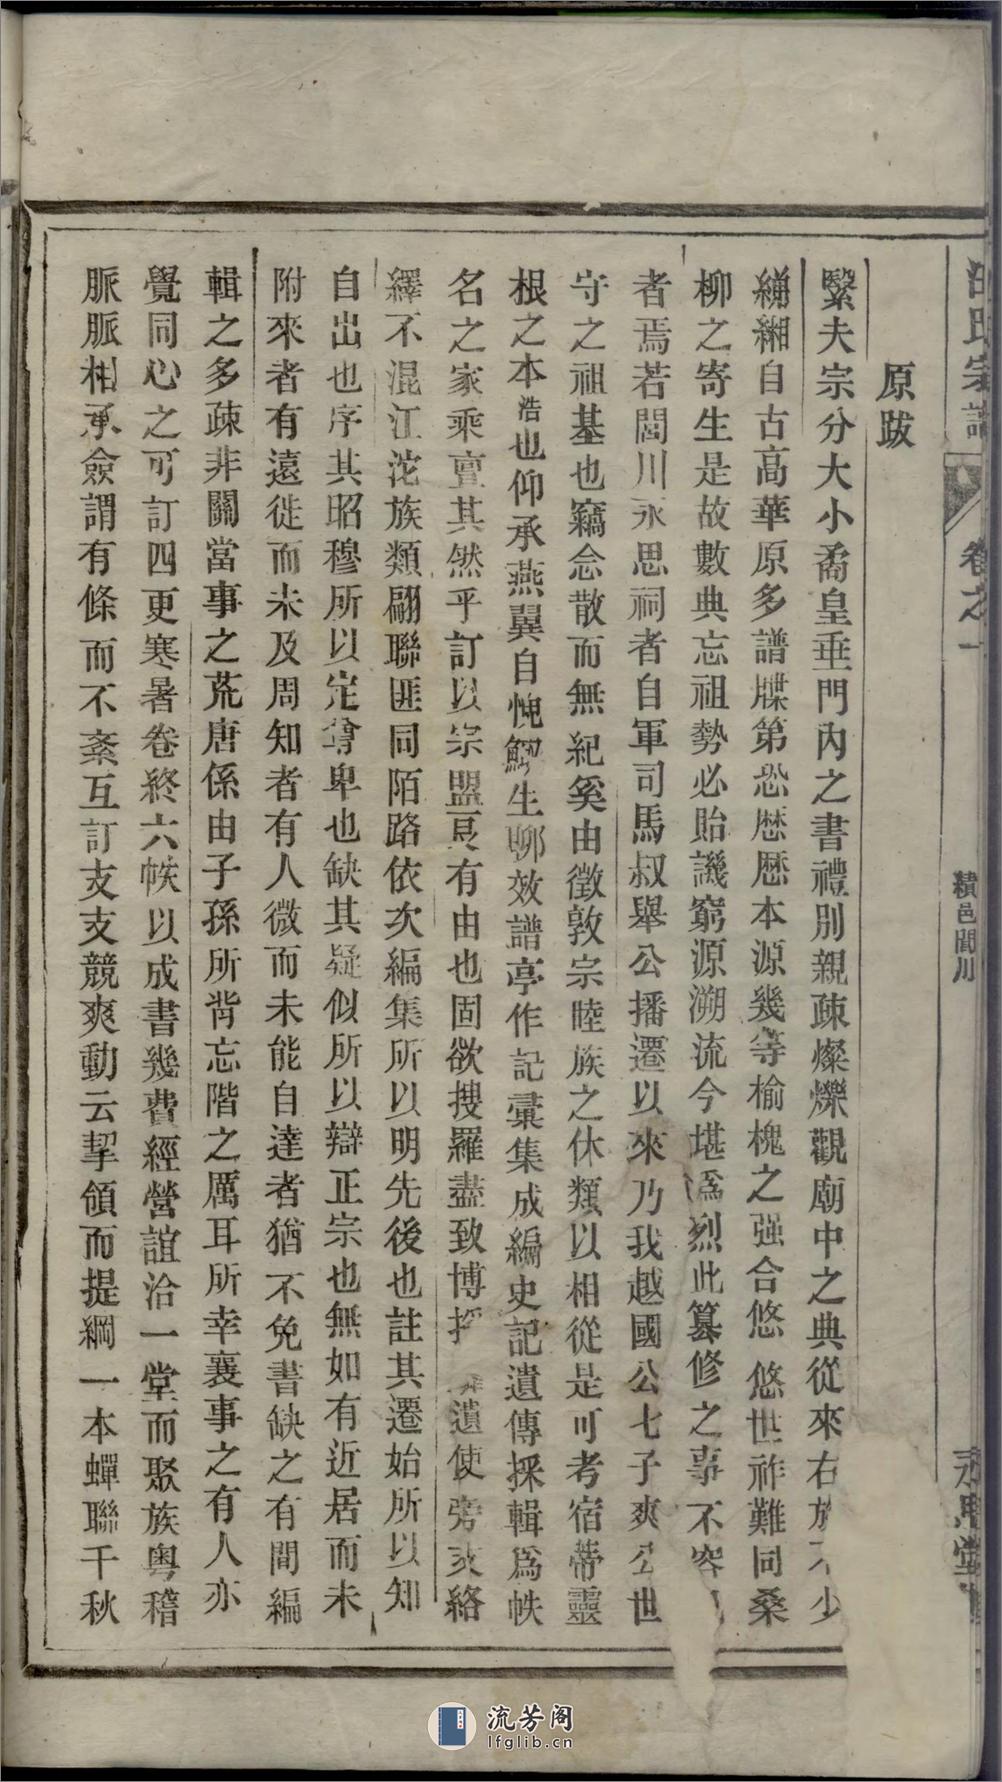 氏宗譜 卷之一 績邑閭川
原跋
繄夫宗分大小喬皇垂門內之書禮別親疎燦爍觀廟中之典從來右族不少
緗自古高華原多譜牒第恐歷歷本源幾等榆槐之强合悠悠世祚難同桑
柳之寄生是故數典忘祖勢必貽譏窮源溯流今堪爲烈此纂修之事不容
者焉若閭川永思祠者自軍司馬叔舉公播遷以來乃我越國公七子爽公世
守之祖基也竊念散而無紀奚由徵敦宗睦族之休類以相從是可考宿蒂靈
根之本浩也仰承燕翼自愧鯫生聊效譜亭作記彙集成編史記遺傳採輯爲帙
名之家乘亶其然乎訂以宗盟良有由也固欲搜羅盡致博遺使旁支絡
繹不混江沱族類翩聯匪同陌路依次編集所以明先後也註其遷始所以知
自出也序其昭穆所以定尊卑也缺其疑似所以辯正宗也無如有近居而未
附來者有遠徙而未及周知者有人微而未能自達者猶不免書缺之有間編
輯之多疎非關當事之荒唐係由子孫所背忘階之厲耳所幸襄事之有人亦
覺同心之可訂四更寒暑卷終六帙以成書幾費經營誼洽一堂而聚族粵稽
脈脈相承僉謂有條而不紊互訂支支競爽動云挈領而提綱一本蟬聯千秋
流芳阁
lfglib.cn